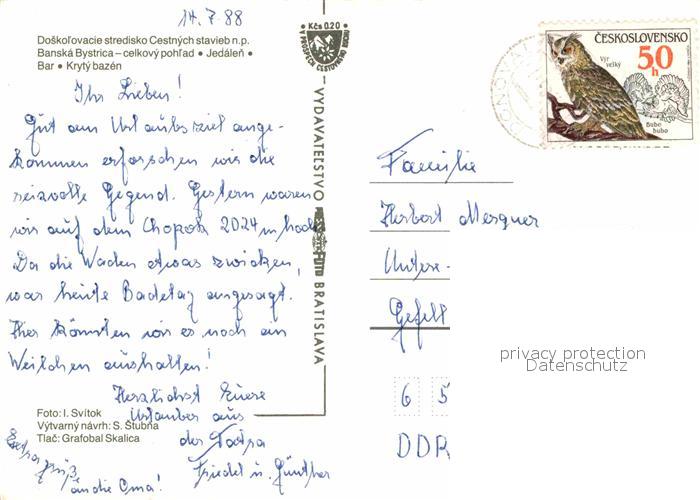 14.7.88
Doškoľovacie stredisko Cestných stavieb n.p.
Banská Bystrica – celkový pohľad • Jedáleň •
Bar • Krytý bazén
Ihr Lieben!
Gut am Urlaubsziel ange-
kommen erforschen wir die
reizvolle Gegend. Gestern waren
wir auf dem Chopok 2024 m hoch
Da die Waden etwas zwicken,
war heute Badetag angesagt.
Hier könnten wir es noch ein
Weilchen aushalten!
Herzlichst Euere
Urlauber aus
der Tatra
Friedel u. Günther
Extragrüße
an die Oma!
Foto: I. Svítok
Výtvarný návrh: S. Štubňa
Tlač: Grafobal Skalica
Kčs 0,20
VYDAVATEĽSTVO
BRATISLAVA
DONOVALY
ČESKOSLOVENSKO
50
h
Výr
velký
Bubo
bubo
Familie
Herbert Mergner
Untere-
Gefell
6 5
DDR
privacy protection
Datenschutz